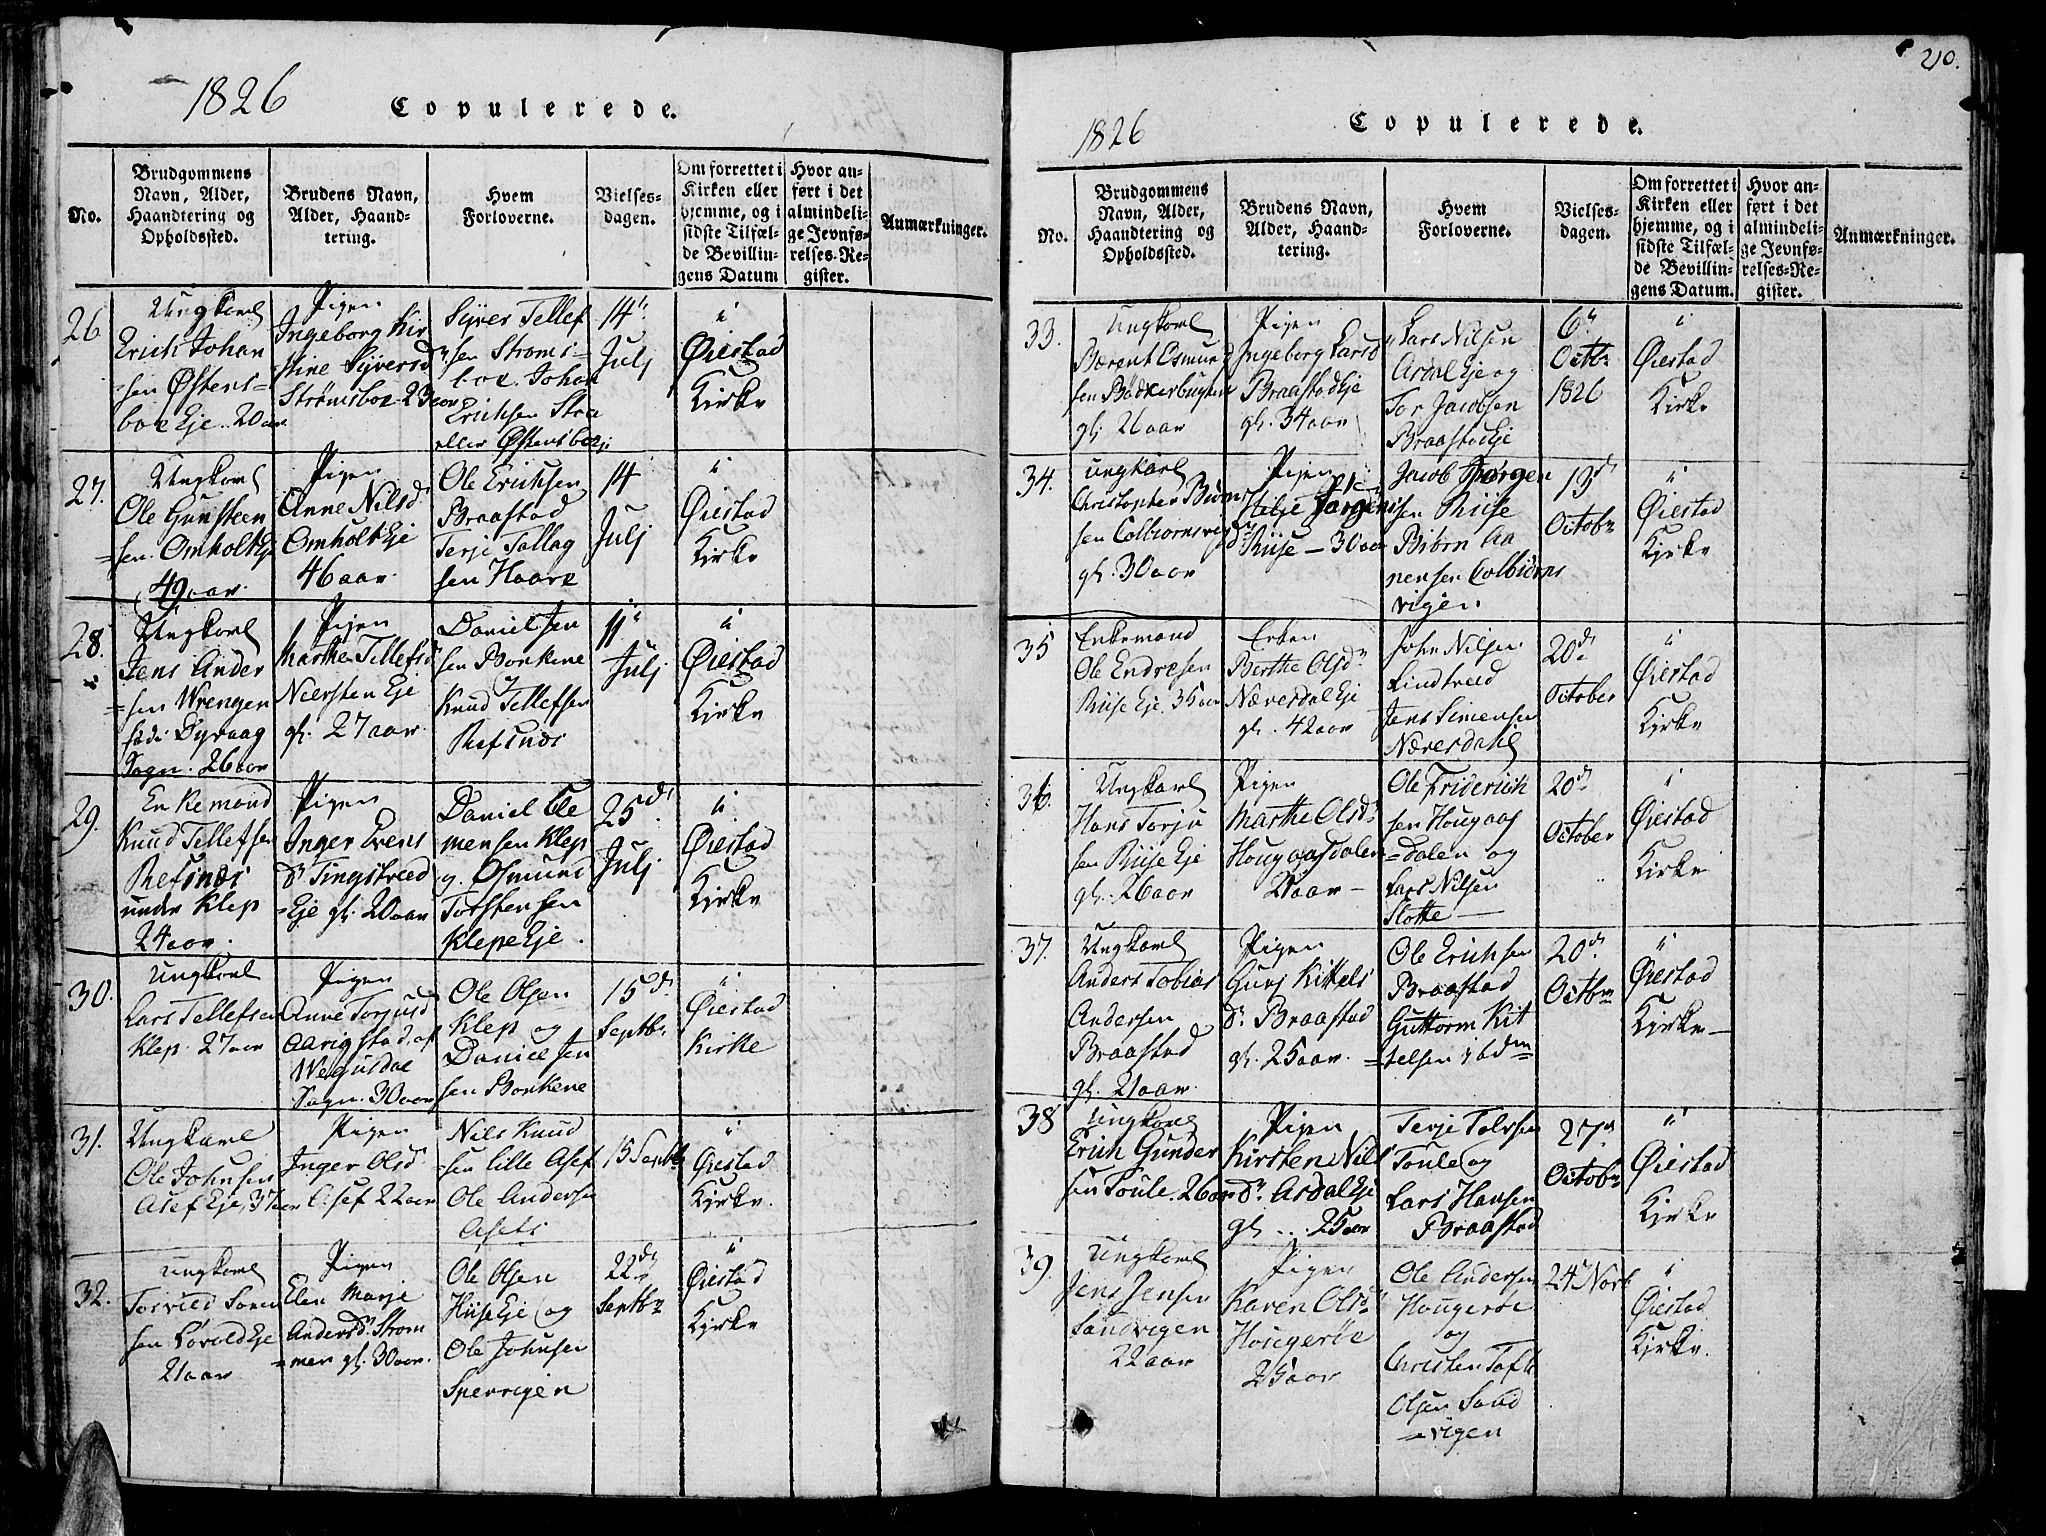 1826
Copulerede.
No.
Brudgommens
Navn, Alder,
Haandtering og
Opholdssted.
Brudens Navn,
Alder, Haand-
tering.
Hvem
Forloverne.
Vielses-
dagen.
Om forrettet i
Kirken eller
hjemme, og i
sidste Tilfæl-
de Bevillin-
gens Datum
Hvor an-
ført i det
almindeli-
ge Jevnfø-
relses-Re-
gister.
Anmærkninger.
26
Ungkarl
Erich Johan
=sen Østens=
boe Eje. 20 aar
Pigen
Ingeborg Kir
stine Syversd
Strømsboe 23 aar
Syver Tellef
sen Strøms-
boe. Johan
Erichsen Stræ
eller Østensboe
14
Julj
"
Øiestad
Kirke
27.
Ungkarl
Ole Gunsteen
=sen. Omholt Eje
49 aar.
Pigen
Anne Nilsd
Omholt Eje
46 aar.
Ole Erichsen
Braastad
Terje Tallag
sen Haare
14
Julj
"
Øiestad
Kirke
28.
Ungkarl
Jens Ander
=sen Wrengen
Sogn. 26 aar
Pigen
Marthe Tellefsd
Neersten Eje
gl. 27 aar.
Daniel Jen
sen Borkene
Knud Tellefsen
Refsnæs
Julj
"
Øiestad
Kirke
29.
Enkemand
Knud Tellefsen
Refsnæs
under Klep
24 aar.
Pigen
Inger Evens
dr Tingstveed
=Eje gl. 20 aar
Daniel Cle
mensen Klep
g. Osmund
Torstensen
Klepe Eje.
25 d.
Julj
"
Øiestad
Kirke
30.
Ungkarl
Lars Tellefsen
Klep. 27 aar
Pigen
Anne Torjusd
Aarigstad, af
Wegusdal
Sogn. 30 aar
Ole Olsen
Klep og
Daniel Jen
sen Borkene
15 d.
Septbr
"
Øiestad
Kirke
31.
Ungkarl
Ole Johnsen
Asef Eje, 37 aar
Pigen
Inger Olsd
Asef 22 aar
Nils Knud
sen lille Asef
Ole Andersen
Asefs
15 Septbr
"
Øiestad
Kirke.
32.
Ungkarl
Torvild Søren
sen Løvold Eje
21 aar
Pigen
Elen Marje
Andersdr. Strøm
=men gl. 30 aar.
Ole Olsen
Hiise Eje og
Ole Johnsen
Spervigen
22 d.
Septbr
"
Øiestad
Kirke
210.
1826
Copulerede.
No.
Brudgommens
Navn, Alder,
Haandtering og
Opholdssted.
Brudens Navn,
Alder, Haand-
tering.
Hvem
Forloverne.
Vielses-
dagen.
Om forrettet i
Kirken eller
hjemme, og i
sidste Tilfæl-
de Bevillin-
gens Datum.
Hvor an-
ført i det
almindeli-
ge Jevnfø-
relses-Re-
gister.
Anmærkninger.
33.
Ungkarl
Bærent Osmund
sen Bødkerbugten
gl. 21 aar
Pigen
Ingeborg Larsd
Braastad Eje
gl. 34 aar
Lars Nilsen
Asdal Eje og
Tor Jacobsen
Braastad Eje
6.
Octbr
1826
"
Øiestad
Kirke
34.
Ungkarl
Christopher Biørn
sen Colbiørnsvig
gl. 30 aar
Pigen
Helje Jørgens
dr Riise — 30 aar
Jacob Jørgen
sen Riise
Biørn Aa
nensen Colbiørns
vigen.
13 d
Octobr
"
Øiestad
Kirke
35
Enkemand
Ole Endresen
Riise Eje. 35 aar
Enken
Berthe Olsdr
Næversdal Eje
gl. 42 aar
John Nilsen
Lindtveed
Jens Simensen
Næversdahl
20 d.
October
"
Øiestad
Kirke
36.
Ungkarl
Hans Torju
sen Riise Eje
gl. 26 aar
Pigen
Marthe Olsd.
Hougaasdalen
21 aar —
Ole Friderich
sen Hougaas
=dalen og
Lars Nilsen
Slotte —
20 d
October
"
Øiestad
Kirke
37.
Ungkarl
Anders Tobias
Andersen
Braastad
gl. 21 aar.
Pigen
Gurj Kittels
dr. Braastad
gl. 25 aar.
Ole Erichsen
Braastad
Guttorm Kit
=telsen ibdm
20 d
Octbr
"
Øiestad
Kirke —
38
Ungkarl
Erich Gunder
sen Soule. 26 aar
Pigen
Kirsten Nils
dr. Asdal Eje
gl .. 25 aar
Terje Talvsen
Soule og
Lars Hansen
Braastad
27 d
Octobr
"
Øiestad
Kirke
39.
Ungkarl
Jens Jensen
Sandvigen
22 aar
Pigen
Karen Olsdr
Hougerøe
25 aar
Ole Andersen
Hougerøe
og
Christen Toft
Olsen Sand
=vigen
24 Novb
"
Øiestad
Kirke.